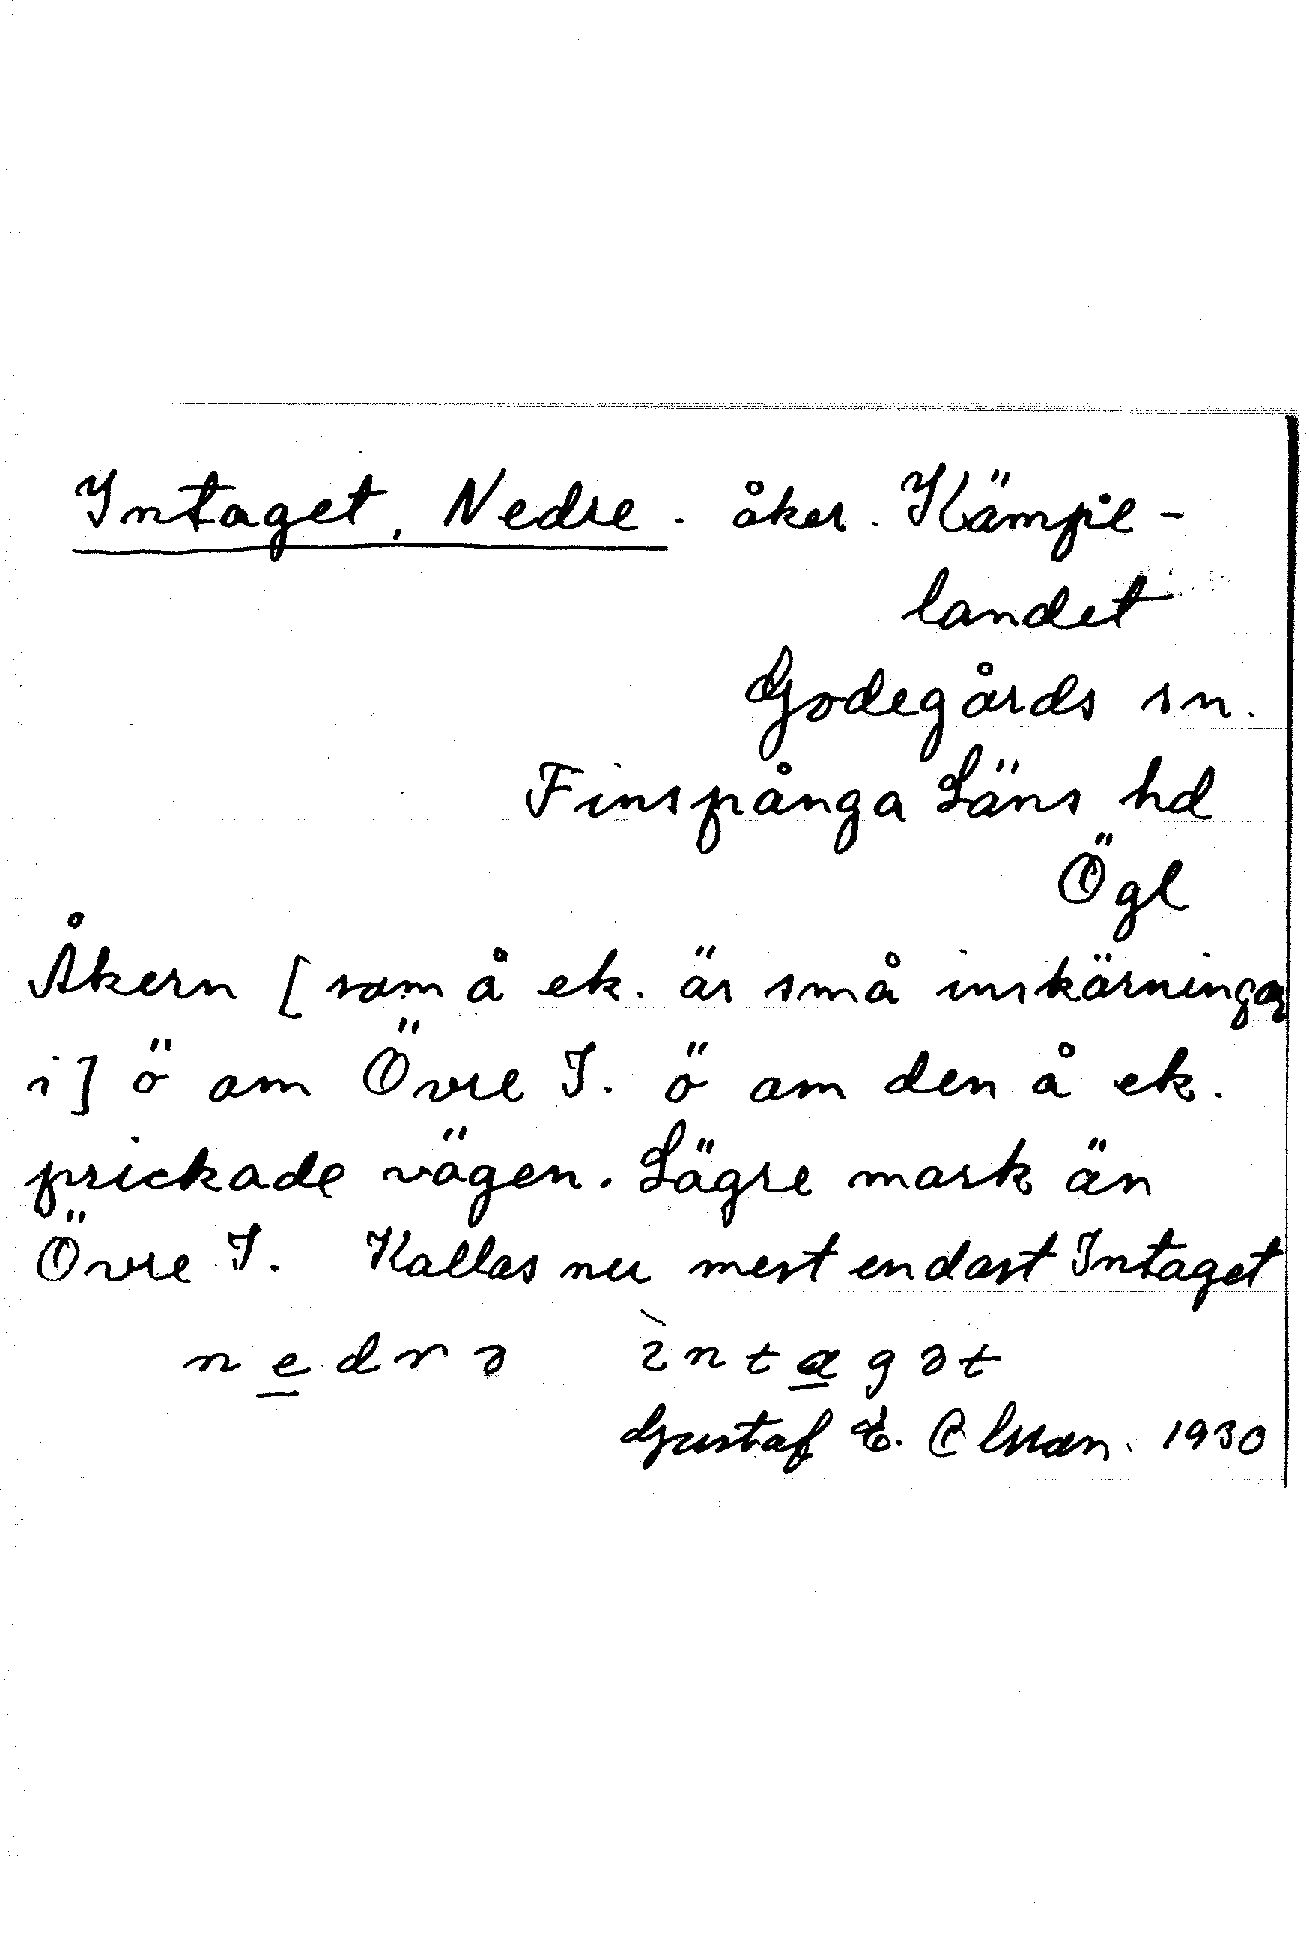 Intaget, Nedre. åker. Kämpe-
landet
Godegårds sn.
Finspånga Läns hd
Ögl
Åkern [som å ek. är små inskärningar
i] ö om Övre I. ö om den å ek.
prickade vägen. Lägre mark än
Övre I. Kallas nu mest endast Intaget
nedrə ìntagət
Gustaf E. Olsson. 1930